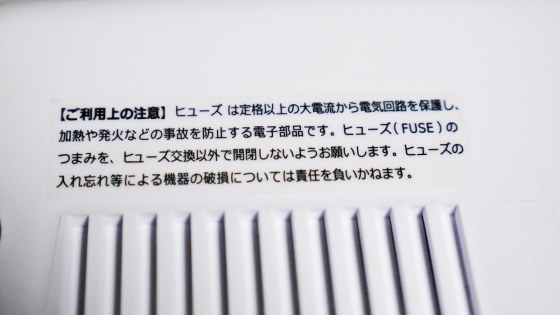 【ご利用上の注意】ヒューズ は定格以上の大電流から電気回路を保護し、
加熱や発火などの事故を防止する電子部品です。ヒューズ(FUSE)の
つまみを、ヒューズ交換以外で開閉しないようお願いします。ヒューズの
入れ忘れ等による機器の破損については責任を負いかねます。